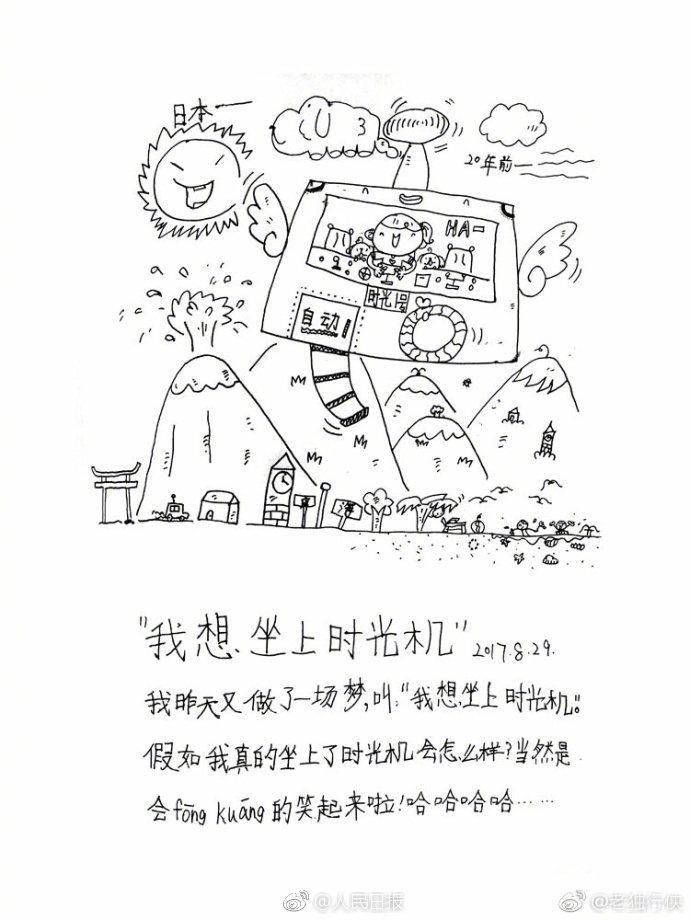 日本一
3
20年前一
HA-
时光1号
自动!
"我想坐上时光机" 2017.8.29.
我昨天又做了一场梦,叫:"我想坐上时光机"。
假如我真的坐上了时光机会怎么样?当然是
会fōng kuáng的笑起来啦!哈哈哈哈……
@人民日报
@老独行侠